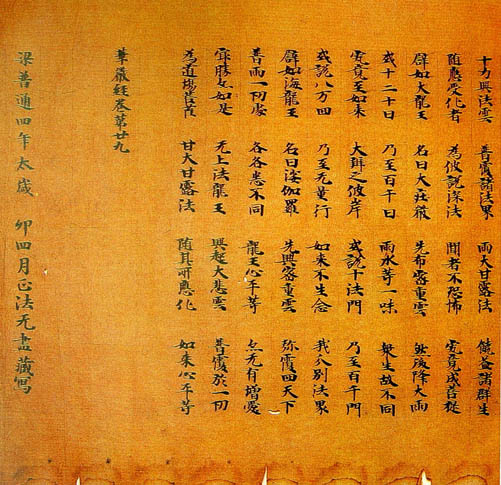 十力興法雲 普覆諸法界 雨大甘露法 饒益諸群生
隨應受化者 為彼說深法 聞者不恐怖 究竟成菩提
譬如大龍王 名曰大莊嚴 先布密重雲 然後降大雨
或十二十日 乃至百千日 雨水等一味 眾生故不同
究竟至如來 大辯之彼岸 或說十法門 乃至百千門
或說八万四 乃至无量行 如來不生念 我分別法界
譬如海龍王 名曰伽羅 先興密重雲 弥覆四天下
普雨一切處 各各悉不同 龍王心平等 亦无有增愛
最勝亦如是 无上法龍王 興起大悲雲 普覆於一切
為道場菩薩 甘大甘露法 隨其所應化 如來心平等
華嚴經卷第廿九
梁普通四年太歲 卯四月正法无盡藏寫